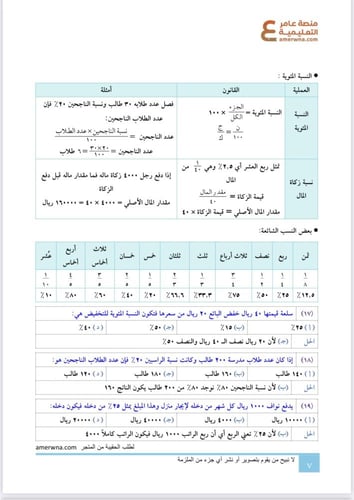 منصة عامر
التعليمية
amerwna.com
● النسبة المئوية :
العملية
القانون
أمثلة
النسبة
المئوية
النسبة المئوية = الجزء / الكل × ١٠٠
ن / ١٠٠ = ج / ك
فصل عدد طلابه ٣٠ طالب ونسبة الناجحين ٢٠٪ فإن
عدد الطلاب الناجحين:
عدد الناجحين = نسبة الناجحين×عدد الطلاب / ١٠٠
عدد الناجحين = ٣٠×٢٠ / ١٠٠ = ٦ طلاب
نسبة زكاة
المال
تمثل ربع العشر أي ٢,٥٪ وهي ١/٤٠ من
المال
قيمة الزكاة = مقدار المال / ٤٠
مقدار المال الأصلي = قيمة الزكاة × ٤٠
إذا دفع رجل ٤٠٠٠ زكاة ماله فما مقدار ماله قبل دفع
الزكاة
مقدار المال الأصلي = ٤٠٠٠ × ٤٠ = ١٦٠٠٠٠ ريال
● بعض النسب الشائعة:
ثمن ربع نصف ثلاث أرباع ثلث ثلثان خمس خمسان ثلاث أخماس أربع أخماس عُشر
١/٨ ١/٤ ١/٢ ٣/٤ ١/٣ ٢/٣ ١/٥ ٢/٥ ٣/٥ ٤/٥ ١/١٠
١٢,٥٪ ٢٥٪ ٥٠٪ ٧٥٪ ٣٣,٣٪ ٦٦,٦٪ ٢٠٪ ٤٠٪ ٦٠٪ ٨٠٪ ١٠٪
(١٧) سلعة قيمتها ٤٠ ريال خفض البائع ٢٠ ريال من سعرها فتكون النسبة المئوية للتخفيض هي:
(أ) ٢٥٪ (ب) ١٥٪ (جـ) ٥٠٪ (د) ٤٠٪
الحل (جـ) لأن ٢٠ ريال نصف الـ ٤٠ ريال والنصف ٥٠٪
(١٨) إذا كان عدد طلاب مدرسة ٢٠٠ طالب وكانت نسبة الراسبين ٢٠٪ فإن عدد الطلاب الناجحين هو:
(أ) ١٤٠ طالب (ب) ١٦٠ طالب (جـ) ١٨٠ طالب (د) ١٢٠ طالب
الحل (ب) لأن نسبة الناجحين ٨٠٪ نوجد ٨٠٪ من ٢٠٠ طالب يكون الناتج ١٦٠
(١٩) يدفع نواف ١٠٠٠ ريال كل شهر من دخله لإيجار منزل وهذا المبلغ يمثل ٢٥٪ من دخله فيكون دخله:
(أ) ١٠٠٠٠ ريال (ب) ٤٠٠٠ ريال (جـ) ٤٠٠٠٠ ريال (د) ٢٠٠٠٠ ريال
الحل (ب) لأن ٢٥٪ تعني الربع أي أن ربع الراتب ١٠٠٠ ريال فيكون الراتب كاملاً ٤٠٠٠
لطلب الحقيبة من المتجر amerwna.com
لا نبيح من يقوم بتصوير أو نشر أي جزء من الملزمة
٧